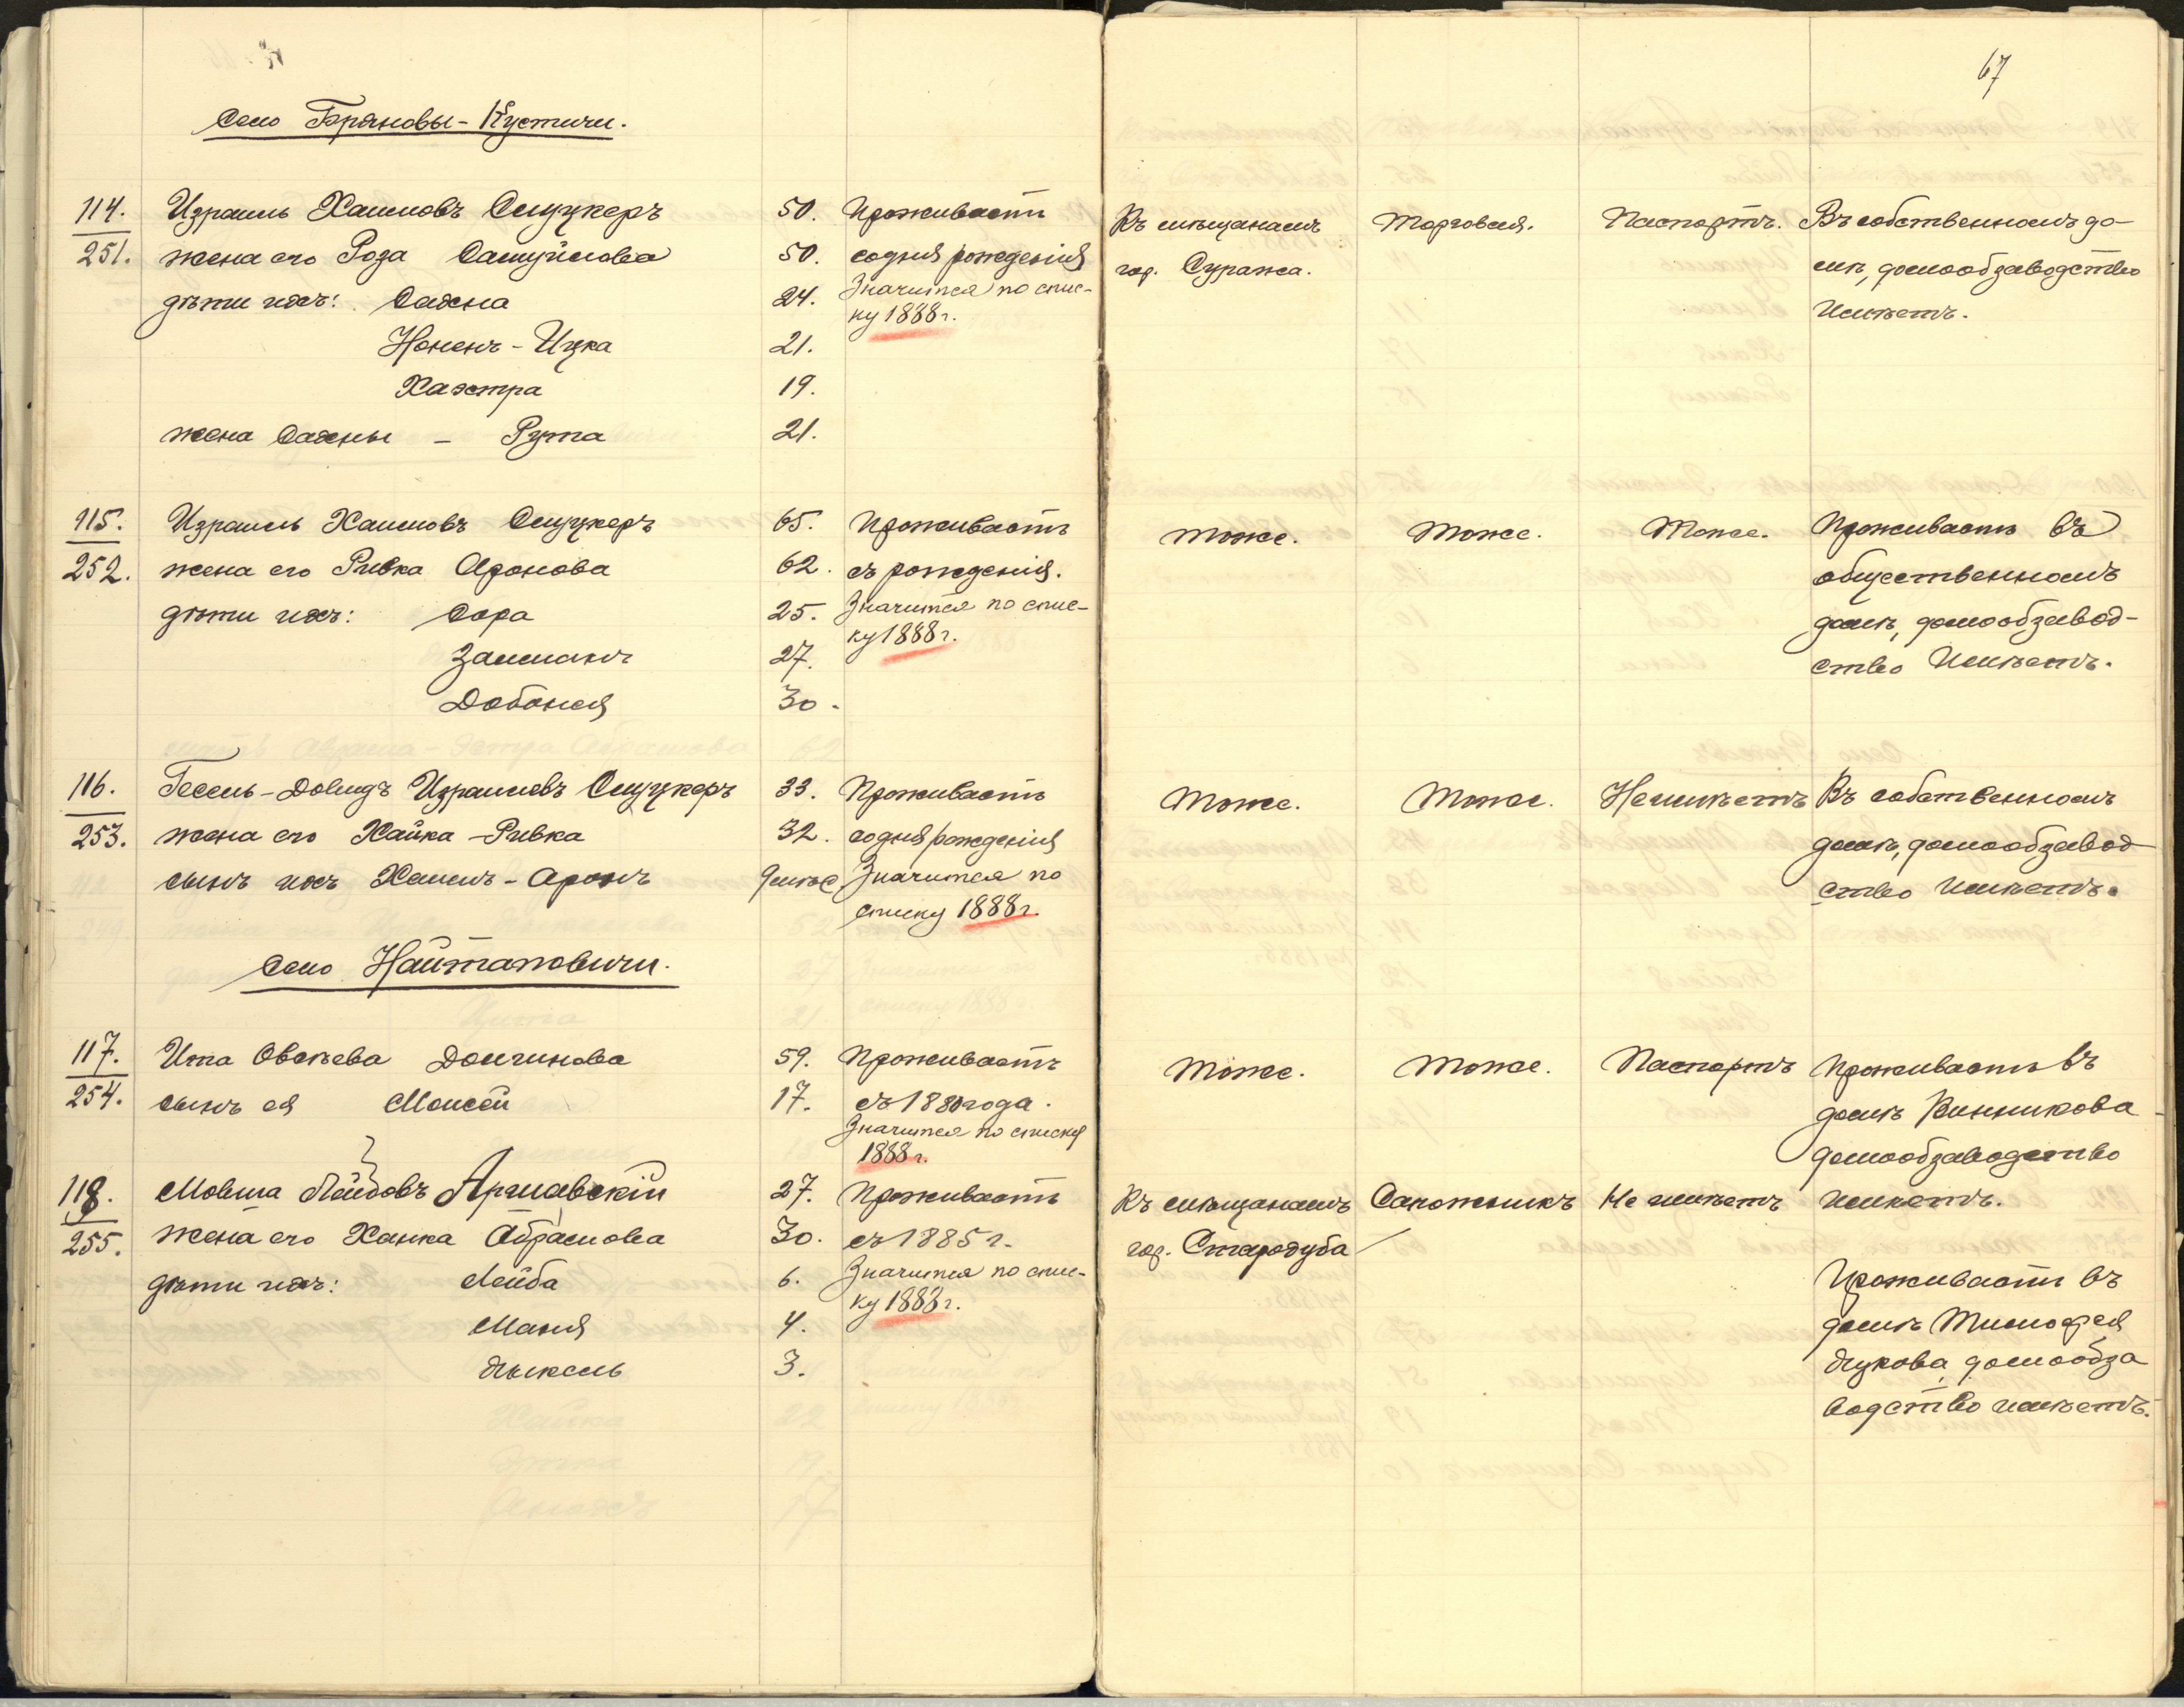 67
Село Бряновы-Кустичи.
114. Израиль Хаимовъ Слуцкеръ 50. Проживаетъ Къ мѣщанамъ Торговля. Паспортъ. Въ собственномъ до-
251. жена его Роза Самуйлова 50. со дня рожденія гор. Суража. мѣ, домообзаводство
дѣти ихъ: Сахна 24. Значится по спис- Имѣетъ.
ку 1888 г.
Ноненъ-Ицка 21.
Хаэстра 19.
жена Сахны – Рута 21.
115. Израиль Хаимовъ Слуцкеръ 65. Проживаетъ Тоже. Тоже. Тоже. Проживаетъ въ
252. жена его Ривка Аронова 62. съ рожденія. общественномъ
дѣти ихъ: Сора 25. Значится по спис- домѣ, домообзавод-
ку 1888 г.
Залманъ 27. ство Имѣетъ.
Добоня 30.
116. Гесель-Довидъ Израилевъ Слуцкеръ 33. Проживаетъ Тоже. Тоже. Неимѣетъ Въ собственномъ
253. жена его Хайка-Ривка 32. со дня рожденія домѣ, домообзавод
сынъ ихъ Хаимъ-Аронъ 9 мѣс. Значится по ство имѣетъ.
списку 1888 г.
Село Найтаповичи.
117. Ита Овсѣева Долгинова 59. Проживаетъ Тоже. Тоже. Паспортъ Проживаетъ въ
254. сынъ ея Моисей 17. съ 1880 года. домѣ Винникова
Значится по списку
1888 г. домообзаводство
118. Мовша Лейбовъ Аршавскій 27. Проживаетъ Къ мѣщанамъ Сапожникъ Не имѣетъ имѣетъ.
255. жена его Ханка Абрамова 30. съ 1885 г. гор. Стародуба
дѣти ихъ: Лейба 6. Значится по спис- Проживаетъ въ
ку 1888 г.
Маня 4. домѣ Тимофея
3. домообза
водство имѣетъ.